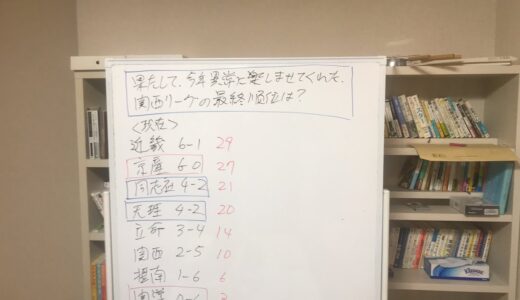 果たして、今年異常と楽しませてくれた、
関西リーグの最終順位は?
<現在>
近畿 6-1 29
京産 6-0 27
同志社 4-2 21
天理 4-2 20
立命 3-4 14
関西 2-5 10
摂南 1-6 6
関学